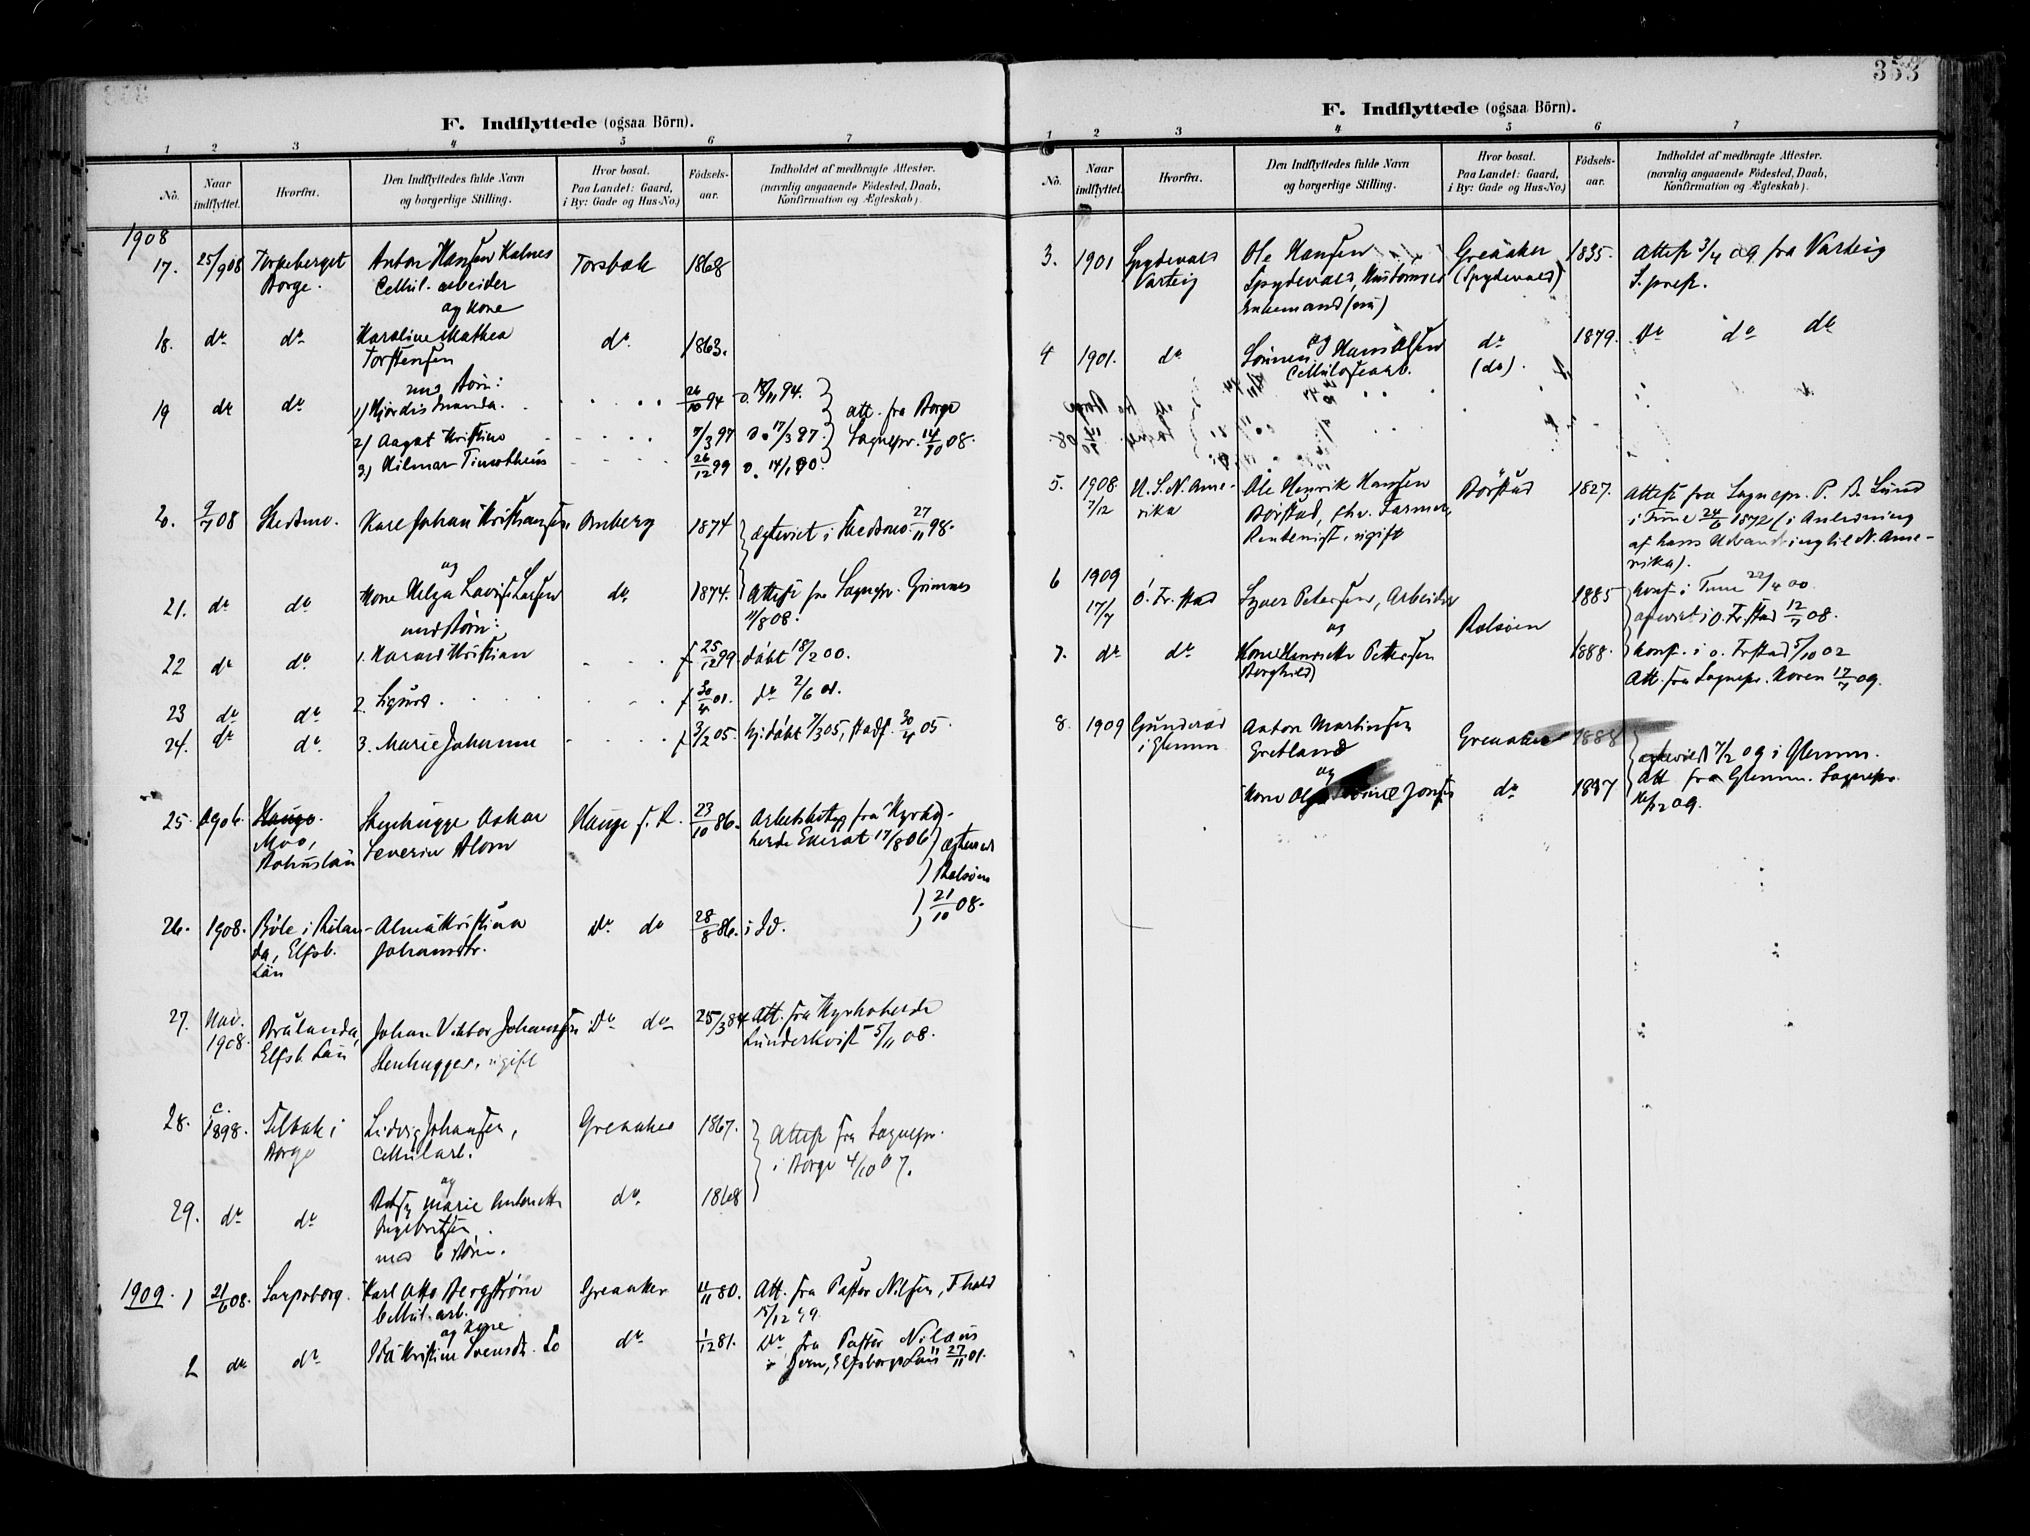 353
F. Indflyttede (ogsaa Börn).
1 2 3 4 5 6 7
No. Naar indflyttet. Hvorfra. Den Indflyttedes fulde Navn og borgerlige Stilling. Hvor bosat. Paa Landet: Gaard, i By: Gade og Hus-No.) Födsels-aar. Indholdet af medbragte Attester. (navnlig angaaende Födested, Daab, Konfirmation og Ægteskab).
1908
17. 25/9 08 Torpeberget Anton Hansen Kalnes Torsbæk 1868
Borge. Cellul. arbeider
og Kone
18. do do Karoline Mathea do 1863.
Torstensen
med Børn:
19 do do 1) Hjördis Amanda. 26/10 94 D. 18/11 94.
2) Aagot Kristine 7/3 97 D. 17/3 97. att. fra Borge
3) Hilmar Timotheus 26/12 99 D. 14/1 00. Sognepr. 14/10 08.
20. 9/7 08 Skedsmo. Karl Johan Kristiansen Amberg 1874 Ægteviet i Skedsmo 27/11 98.
og
21. do do Kone Helga Lovise Larsen do 1874. Attest fra Sognepr. Grimnes
med Børn: 11/8 08.
22 do do 1. Harald Kristian f 25/12 99 döbt 18/2 00.
23 do do 2. Sigurd f 30/4 01. do 2/6 01.
24. do do 3. Marie Johanne f 3/2 05 hj. döbt 7/3 05, stadf. 30/4 05.
25. 1906. Hauge. Stenhugger Oskar Hauge s. R. 23/10 86. Arbetsbetyg fra Kyrko-
Moo, Severin Blom herde 17/8 06 ægteviet
Bohuslän Rolvsöen
21/10 08.
26. 1908. Böle i Rölan- Alma Kristina Do do 28/8 86. i Id.
da, Elfsb. Johansdtr.
Län
27. Nov. Brålanda, Johan Viktor Johansson Do do 25/3 84 Att. fra Kyrkoherde
1908. Elfsb. Län Stenhugger, ugift Lunderkvist 5/11 08.
28. c. 1898. Selbak i Ludvig Johansen, Greaaker 1867. Attest fra Sognepr.
Borge Cellul arb. i Borge 4/10 07.
og
29. do do Betsy Marie Antonette do 1868
Ingebretsen,
med 6 Börn.
1909. 1 21/6 08. Sarpsborg. Karl Otto Bergström Greaaker 11/11 80. Att. fra Pastor Nilsen, F hald
Cellul. arb. 15/12 99.
og Kone
2 do do Ida Kristine Svensdt. do 1/12 81. Do fra Pastor
Elfsborgs Län 27/11 01.
F. Indflyttede (ogsaa Börn).
1 2 3 4 5 6 7
No. Naar indflyttet. Hvorfra. Den Indflyttedes fulde Navn og borgerlige Stilling. Hvor bosat. Paa Landet: Gaard, i By: Gade og Hus-No.) Födsels-aar. Indholdet af medbragte Attester. (navnlig angaaende Födested, Daab, Konfirmation og Ægteskab).
3. 1901 Spydevold Ole Hansen Greaaker 1835. Attest 3/4 09 fra Varteig
Varteig Spydevold, Husbonde (Spydevold) S. prest.
Enkemand
og
4 1901. do Sönnen Hans Olsen do 1879. Do do do
Cellulosearb. (do).
5. 1908. U. S. N. Ame- Ole Henrik Hansen Börstad 1827. Attest fra Sognepr. P. B. Lund
7/12 rika Börstad, fhv. Farmer, i Tune 24/6 1872 (i Anledning
Rentenist, ugift af hans Udvandring til N. Ame-
rika).
6 1909 konf. i Tune 22/4 00.
17/7 Ö. Fr. stad Syver Petersen, Arbeider Rolsöen 1885 ægteviet i O. Fr. stad 12/7 08.
og
7. do do Kone Henriette Pettersen 1888. konf. i o. Frstad 5/10 02
(Borghild) Att. fra Sognepr. Koren 17/7 09.
8. 1909 Gunderöd Anton Martinsen Greaaker 1888 ægteviet 7/2 09 i Glemm.
i Glemm Gretland
og
Kone Olga Jons do 1887 Att fra Glemm. Sognepr.
09.